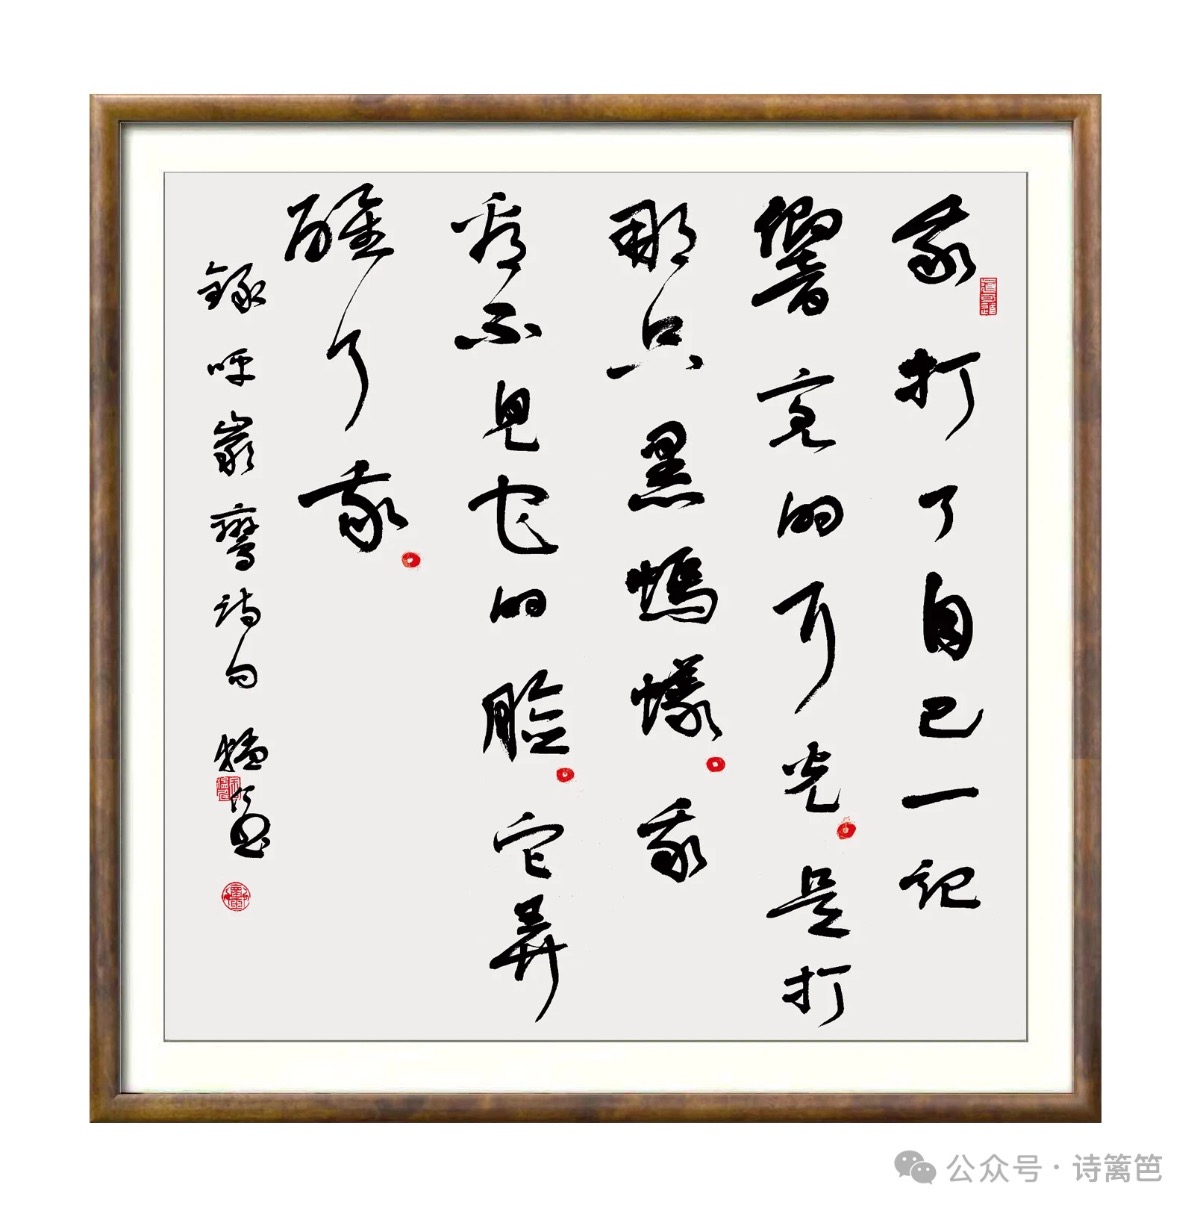 我打了自己一记
响亮的耳光是打
那只黑蚂蚁我
看不见它的脸它弄
醒了我
录呼岩鸾诗句
公众号·诗篱笆